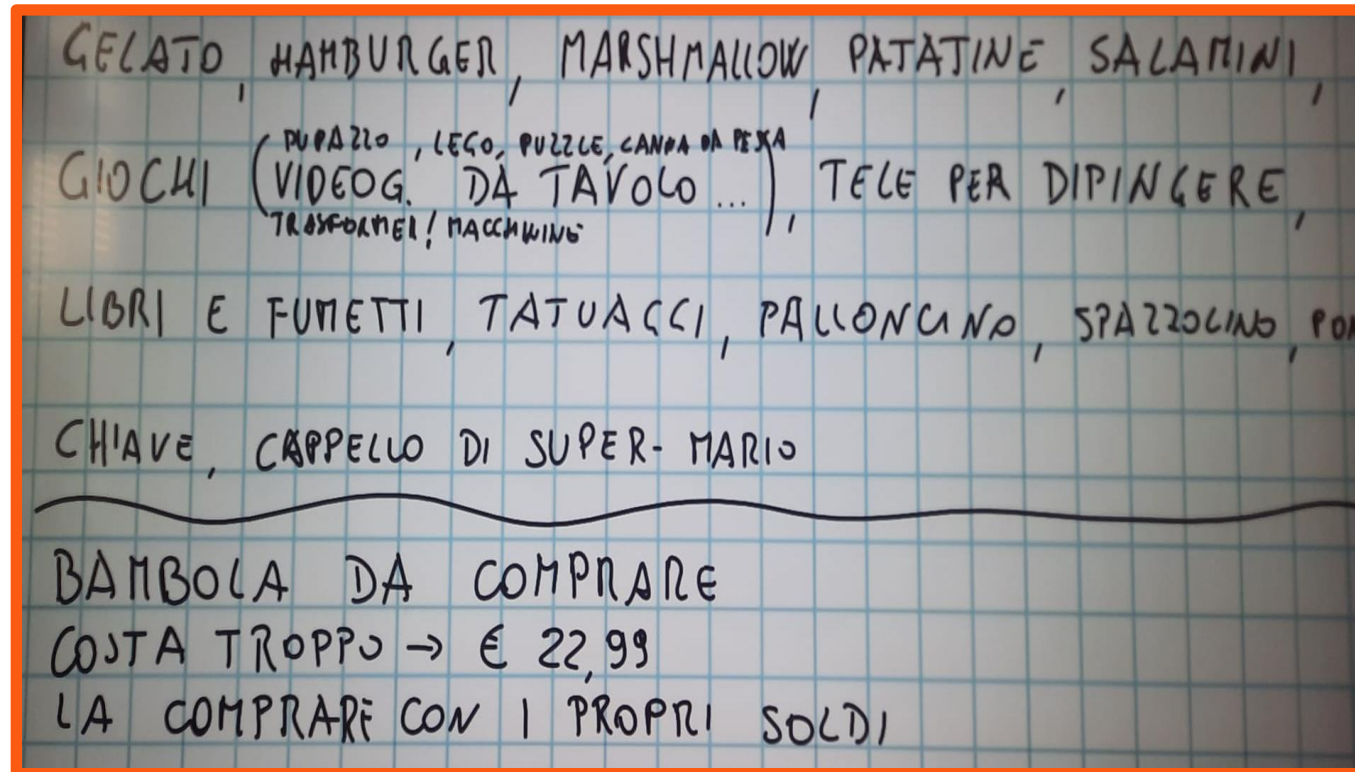 GELATO, HAMBURGER, MARSHMALLOW, PATATINE, SALAMINI,
PUPAZZO, LEGO, PUZZLE, CANNA DA PESCA
GIOCHI (VIDEOG. DA TAVOLO...), TELE PER DIPINGERE,
TRASFORMER! MACCHININE
LIBRI E FUMETTI, TATUAGGI, PALLONCINO, SPAZZOLINO,
CHIAVE, CAPPELLO DI SUPER-MARIO
BAMBOLA DA COMPRARE
COSTA TROPPO → € 22,99
LA COMPRARE CON I PROPRI SOLDI